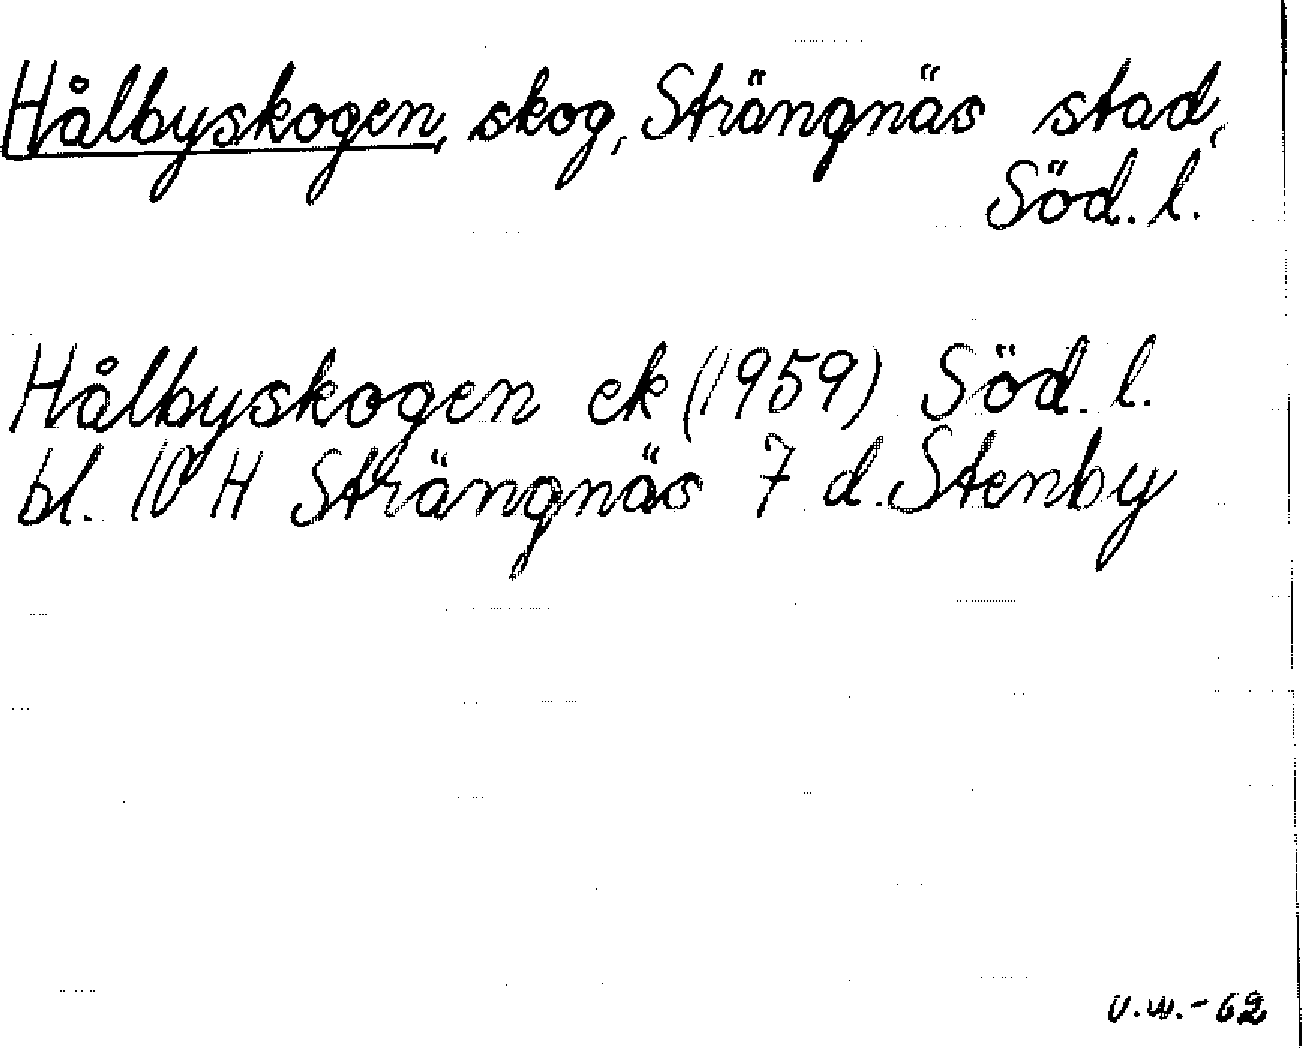 Hålbyskogen, skog, Strängnäs stad,
Söd. l.
Hålbyskogen ek (1959) Söd. l.
bl. 10 H Strängnäs 7 d. Stenby
U.W.-62